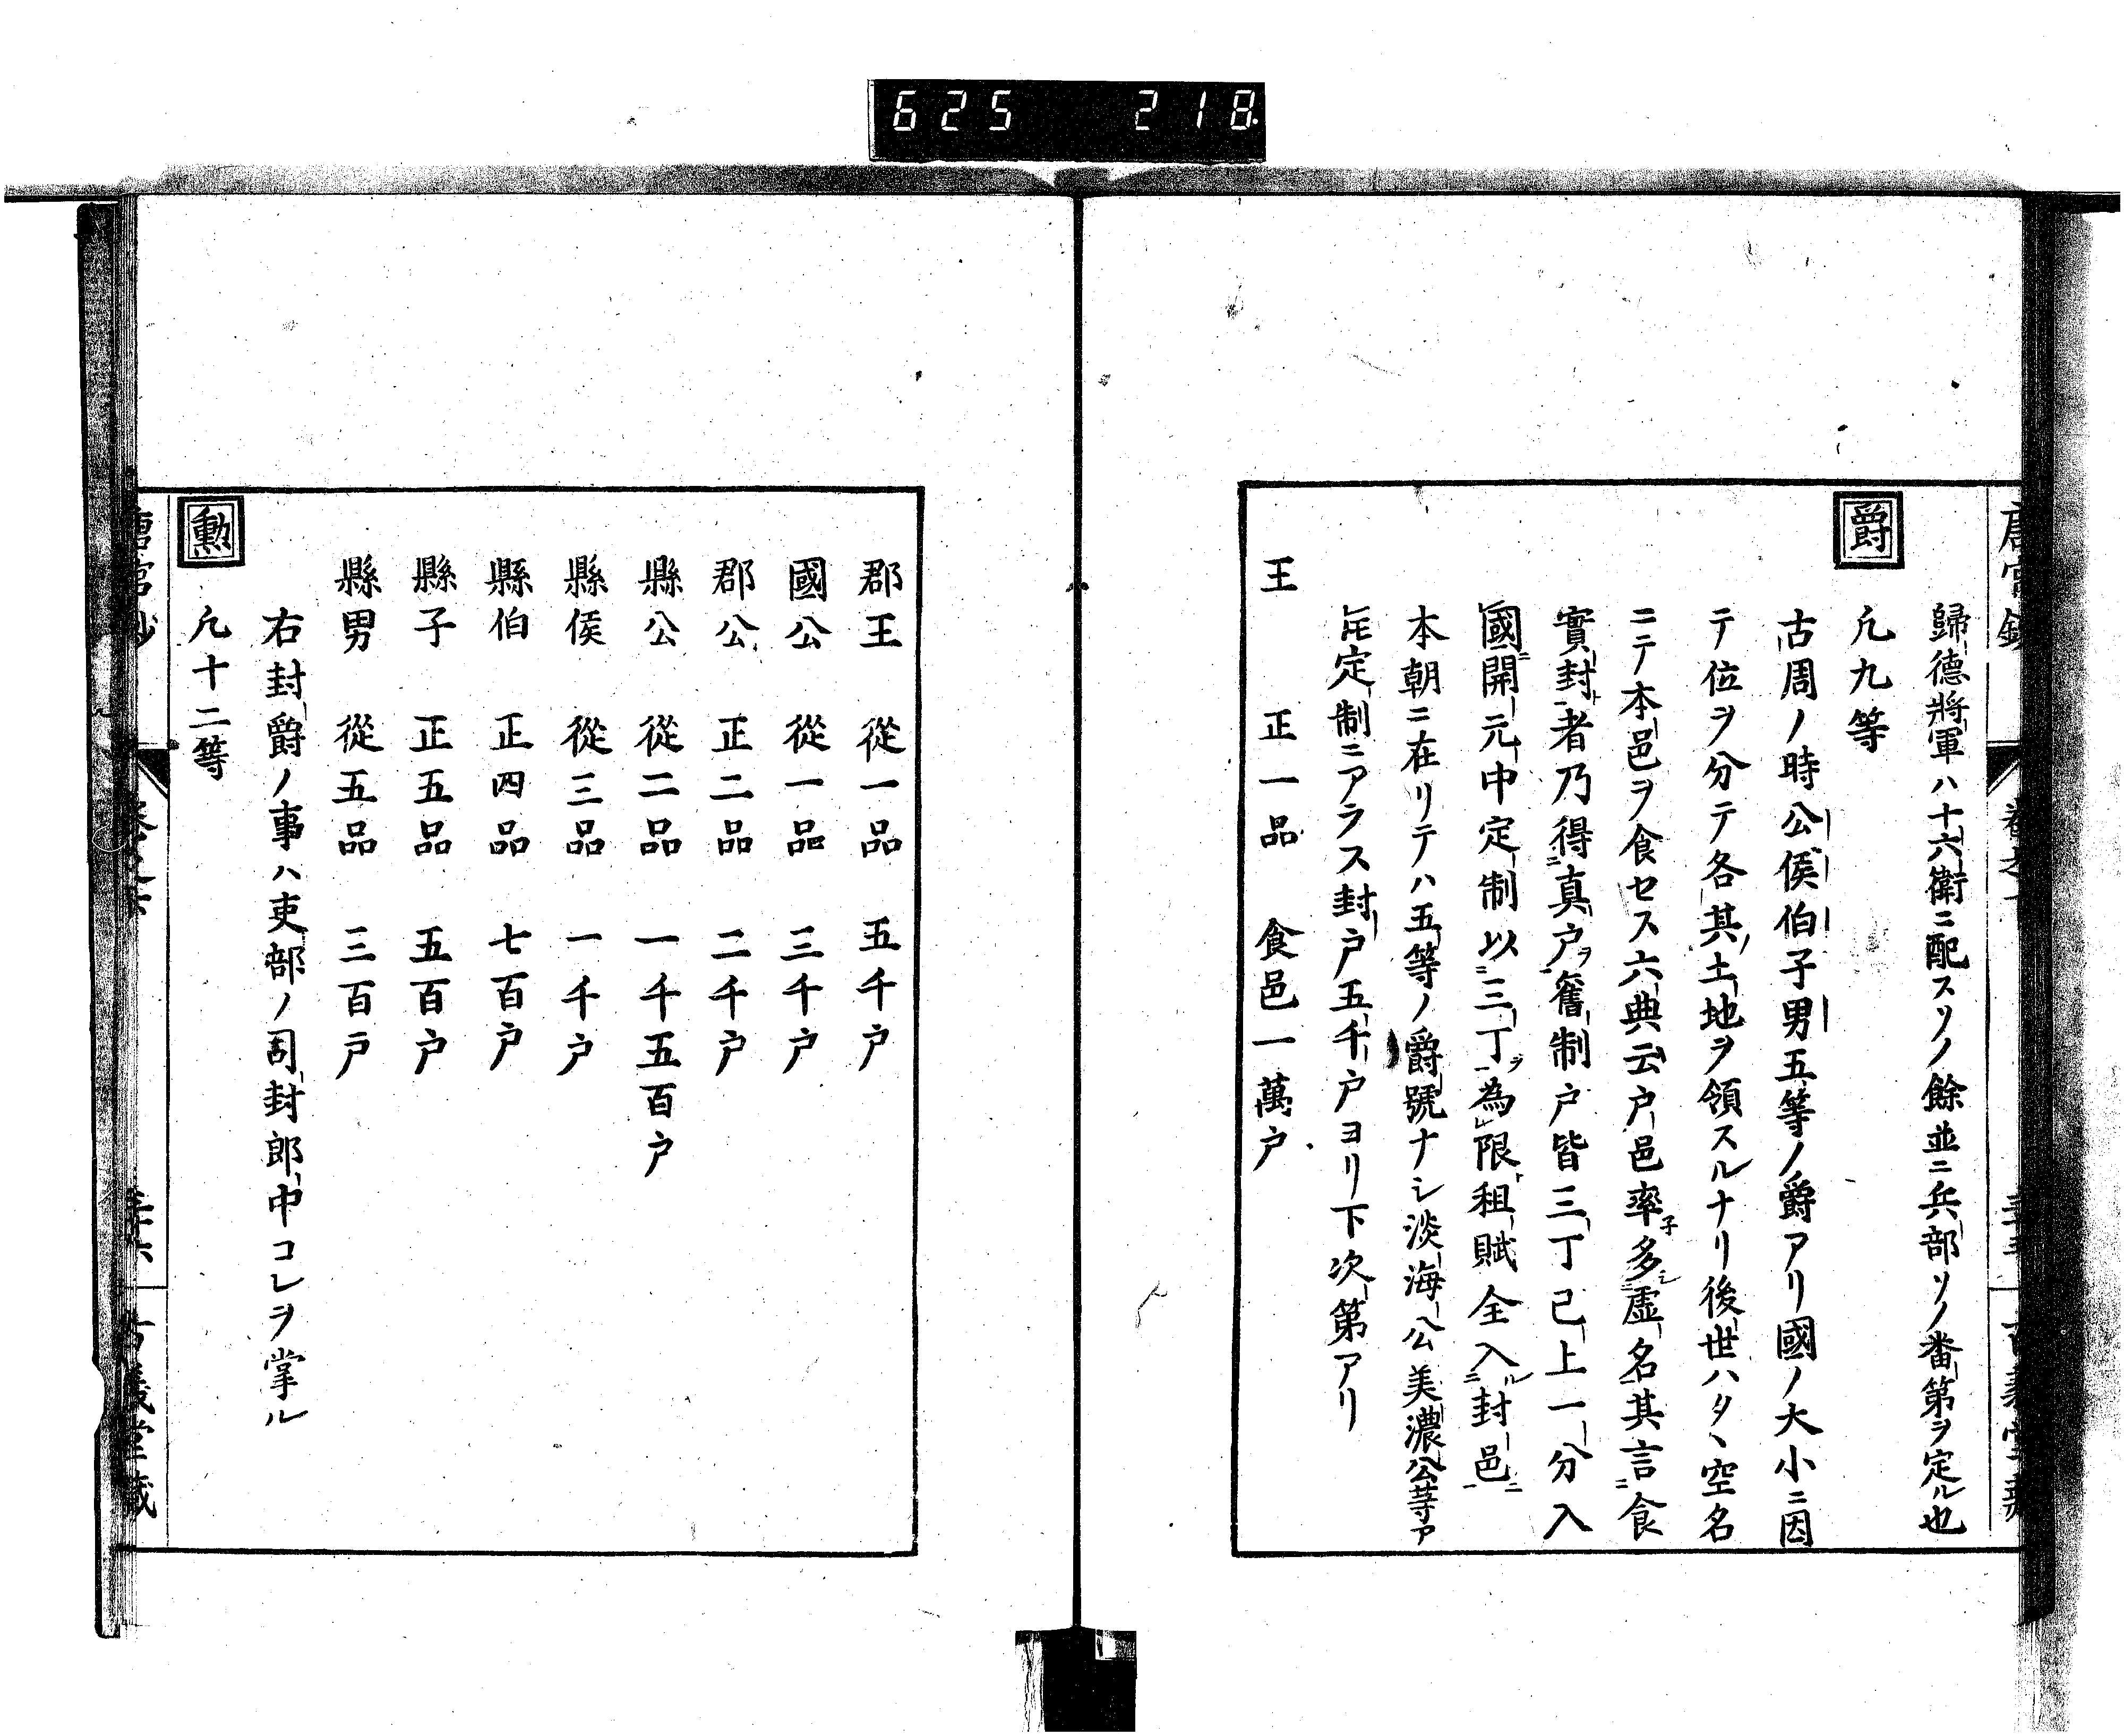 625 218
歸德將軍ハ十六衛ニ配スソノ餘並ニ兵部ソノ番第ヲ定ル也
爵
凢九等
古周ノ時公侯伯子男五等ノ爵アリ國ノ大小ニ因
テ位ヲ分テ各其土地ヲ領スルナリ後世ハタヽ空名
ニテ本邑ヲ食セス六典云户邑率子多シ虛名其言食
實封者乃得真户ヲ舊制户皆三丁已上一分入
國開元中定制以三丁ヲ為限租賦全入ル封邑ニ
本朝ニ在リテハ五等ノ爵號ナシ淡海公美濃公等ア
𪜈定制ニアラス封户五千户ヨリ下次第アリ
王 正一品 食邑一萬户
郡王 從一品 五千户
國公 從一品 三千户
郡公 正二品 二千户
縣公 從二品 一千五百户
縣侯 從三品 一千户
縣伯 正四品 七百户
縣子 正五品 五百户
縣男 從五品 三百户
右封爵ノ事ハ吏部ノ司封郎中コレヲ掌ル
勲
凢十二等